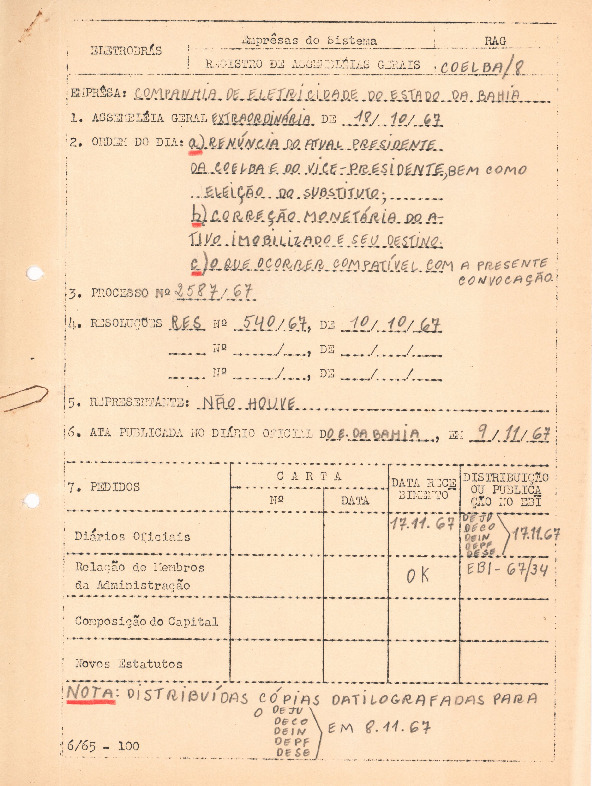 ELETROBRÁS
Emprêsas do Sistema
RAG
REGISTRO DE ASSEMBLÉIAS GERAIS
COELBA/8
EMPRÊSA: COMPANHIA DE ELETRICIDADE DO ESTADO DA BAHIA
1. ASSEMBLÉIA GERAL EXTRAORDINÁRIA DE 18/10/67
2. ORDEM DO DIA: a) RENÚNCIA DO ATUAL PRESIDENTE
DA COELBA E DO VICE-PRESIDENTE, BEM COMO
ELEIÇÃO DO SUBSTITUTO;
b) CORREÇÃO MONETÁRIA DO A-
TIVO IMOBILIZADO E SEU DESTINO.
c) O QUE OCORRER COMPATÍVEL COM A PRESENTE
CONVOCAÇÃO
3. PROCESSO Nº 2587/67
4. RESOLUÇÕES RES Nº 540/67, DE 10/10/67
Nº ___/___, DE ___/___/___
Nº ___/___, DE ___/___/___
5. REPRESENTANTE: NÃO HOUVE
6. ATA PUBLICADA NO DIÁRIO OFICIAL DO E. DA BAHIA, EM 9/11/67
7. PEDIDOS
CARTA
Nº
DATA
DATA RECE
BIMENTO
DISTRIBUIÇÃO
OU PUBLICA
ÇÃO NO EBI
Diários Oficiais
17.11.67
DEJU
DECO
DEIN
DEPF
DESE
17.11.67
Relação de Membros
da Administração
OK
EBI-67/34
Composição do Capital
Novos Estatutos
NOTA: DISTRIBUÍDAS CÓPIAS DATILOGRAFADAS PARA
O DEJU
DECO
DEIN
DEPF
DESE
EM 8.11.67
6/65 - 100